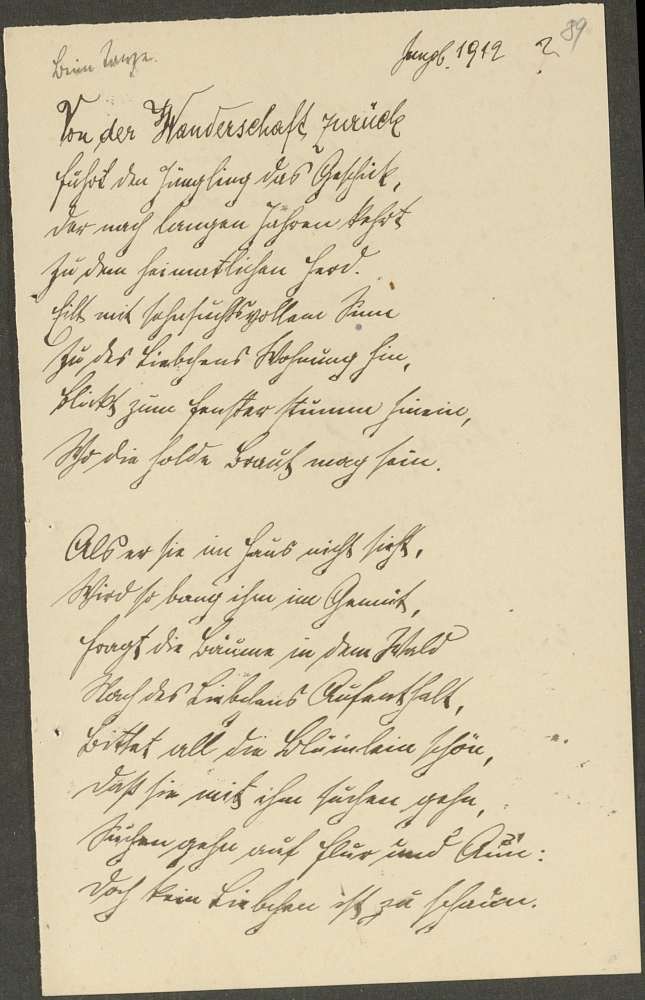 Beim Tanze.
1912 ?
89
Von der Wanderschaft zurück
führt den Jüngling das Geschick,
der nach langen Jahren kehrt
zu dem heimatlichen Herd.
Eilt mit sehnsuchtsvollem Sinn
zu des Liebchens Wohnung hin,
blickt zum Fenster stumm hinein,
Wo die holde Braut mag sein.
Als er sie im Haus nicht sieht,
Wird so bang ihm im Gemüt,
fragt die Bäume in dem Wald
Nach des Liebchens Aufenthalt,
bittet all die Blümlein schön,
daß sie mit ihm suchen gehn,
Suchen gehn auf Flur und Au'n:
doch kein Liebchen ist zu schaun.